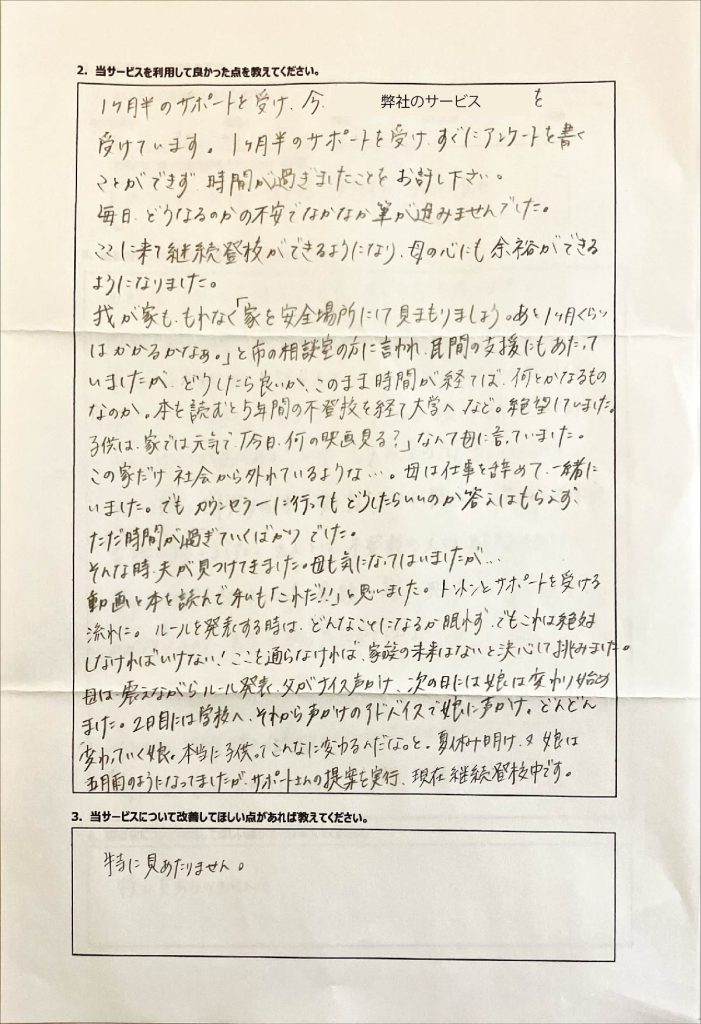 2. 当サービスを利用して良かった点を教えてください。
1ヶ月半のサポートを受け、今、 弊社のサービス を
受けています。1ヶ月半のサポートを受け、すぐにアンケートを書く
ことができず、時間が過ぎましたことをお許し下さい。
毎日、どうなるのかの不安でなかなか筆が進みませんでした。
ここに来て継続登校ができるようになり、母の心にも余裕ができる
ようになりました。
我が家も、もれなく「家を安全場所にして見まもりましょう。あと1ヶ月くらい
はかかるかなぁ。」と市の相談室の方に言われ、民間の支援にもあたって
いましたが、どうしたら良いか、このまま時間が経てば、何とかなるもの
なのか。本を読むと5年間の不登校を経て大学へなど。絶望していました。
子供は、家では元気で、「今日、何の映画見る？」なんて母に言っていました。
この家だけ社会から外れているような…。母は仕事を辞めて、一緒に
いました。でもカウンセラーに行ってもどうしたらいいのか答えはもらえず、
ただ時間が過ぎていくばかりでした。
そんな時、夫が見つけてきました。母も気になってはいましたが…
動画と本を読んで私も「これだ!!」と思いました。トントンとサポートを受ける
流れに。ルールを発表する時は、どんなことになるか眠れず、でもこれは絶対
しなければいけない！ここを通らなければ、家族の未来はないと決心して挑みました。
母は震えながらルール発表、父がナイス声かけ、次の日には娘は変わり始め
ました。2日目には学校へ、それから声かけのアドバイスで娘に声かけ。どんどん
変わっていく娘。本当に子供ってこんなに変わるんだなっと。夏休み明け、又娘は
五月雨のようになってましたが、サポートさんの提案を実行、現在継続登校中です。
3. 当サービスについて改善してほしい点があれば教えてください。
特に見あたりません。